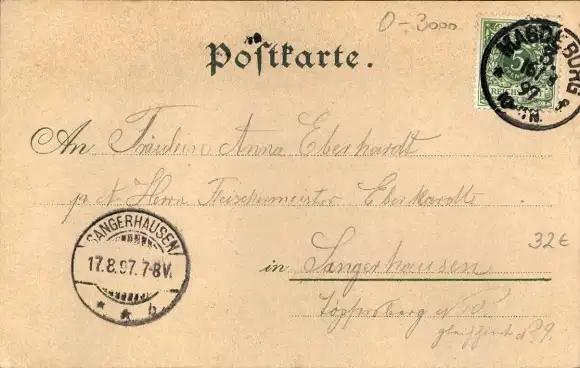 0-3000
Postkarte.
MAGDEBURG
16/8
97
5
REICHSPOST
An Fräulein Anna Eberhardt
p. A. Herrn Fleischermeister Eberhardt
SANGERHAUSEN
17.8.97.7-8V.
* * b
32€
in Sangerhausen
Töpfersberg